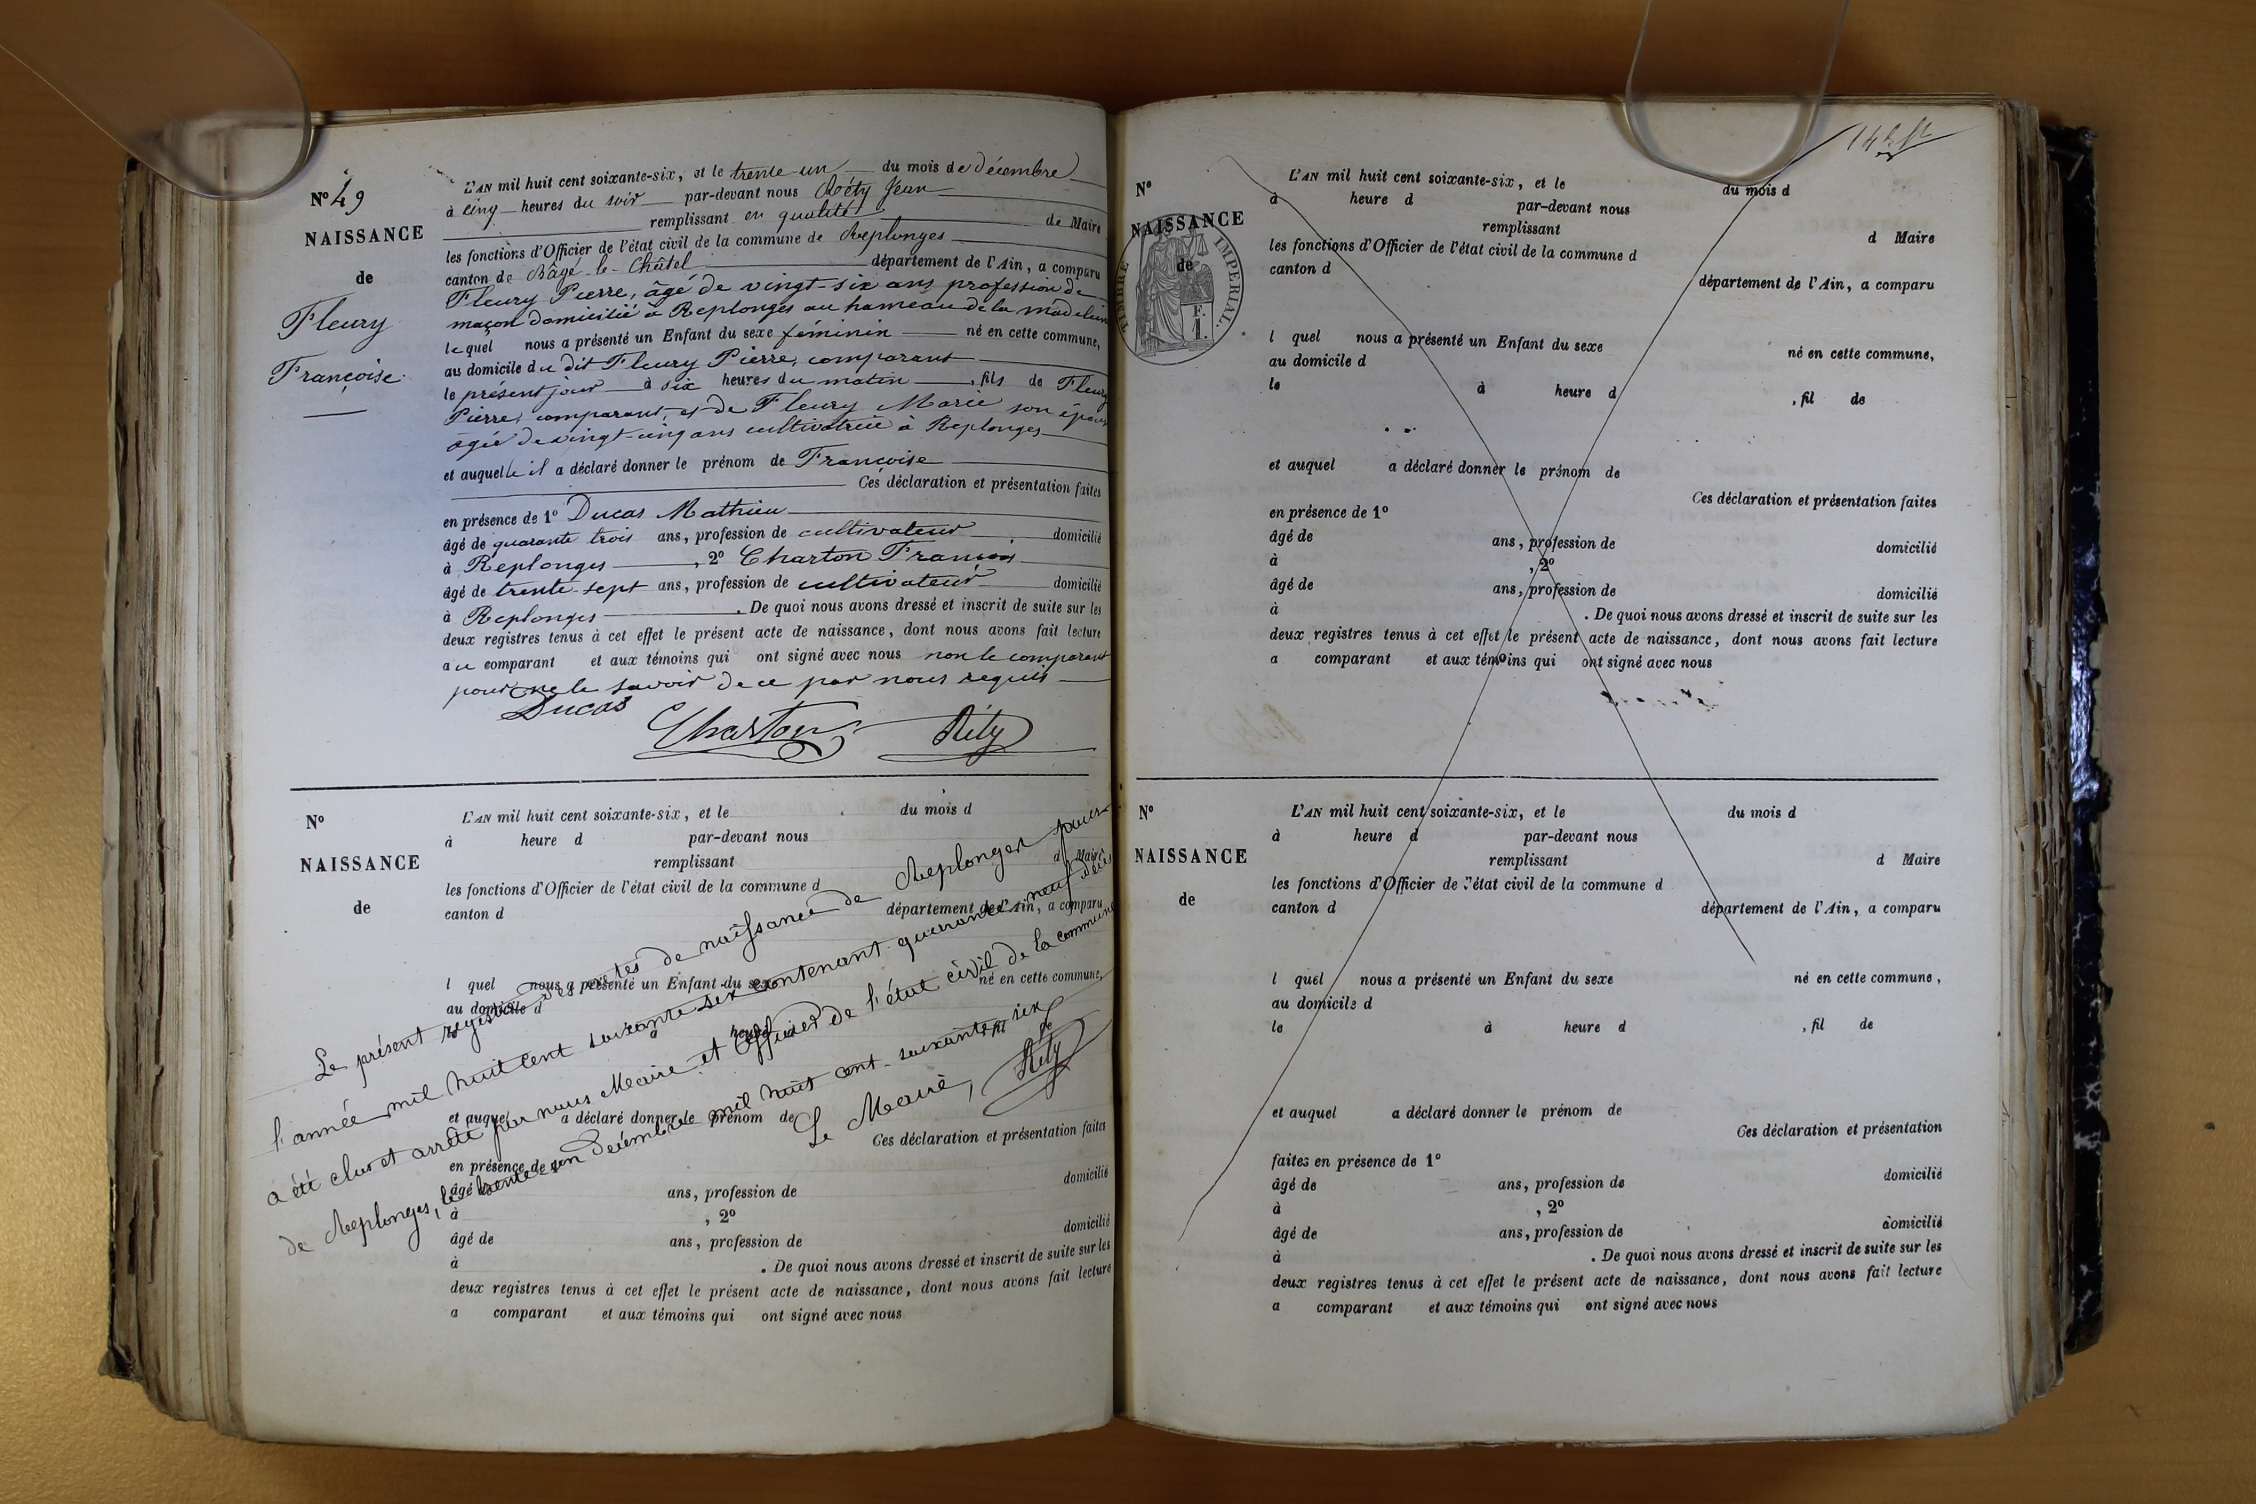 N° 49
NAISSANCE
de
Fleury
Françoise
L'AN mil huit cent soixante-six, et le trente-un du mois de décembre
à cinq heures du soir par-devant nous Réty Jean
remplissant en qualité de Maire
les fonctions d'Officier de l'état civil de la commune de Replonges
canton de Bâgé-le-Châtel département de l'Ain, a comparu
Fleury Pierre, âgé de vingt-six ans profession de
maçon domicilié à Replonges au hameau de la madeleine
lequel nous a présenté un Enfant du sexe féminin né en cette commune,
au domicile du dit Fleury Pierre, comparant
le présent jour à six heures du matin, fils de Fleury
Pierre, comparant, et de Fleury Marie son épouse
âgée de vingt-cinq ans cultivatrice à Replonges
et auquelle il a déclaré donner le prénom de Françoise
Ces déclaration et présentation faites
en présence de 1° Ducas Mathieu
âgé de quarante trois ans, profession de cultivateur domicilié
à Replonges, 2° Charton François
âgé de trente-sept ans, profession de cultivateur domicilié
à Replonges. De quoi nous avons dressé et inscrit de suite sur les
deux registres tenus à cet effet le présent acte de naissance, dont nous avons fait lecture
au comparant et aux témoins qui ont signé avec nous non le comparant
pour ne le savoir de ce par nous requis
Ducas
Charton Réty
N°
NAISSANCE
de
L'AN mil huit cent soixante-six, et le du mois d
à heure d par-devant nous
remplissant d Maire
les fonctions d'Officier de l'état civil de la commune d
canton d département de l'Ain, a comparu
l quel nous a présenté un Enfant du sexe né en cette commune,
au domicile d
le à heure d, fil de
et auquel a déclaré donner le prénom de
Ces déclaration et présentation faites
en présence de 1°
âgé de ans, profession de domicilié
à , 2°
âgé de ans, profession de domicilié
à . De quoi nous avons dressé et inscrit de suite sur les
deux registres tenus à cet effet le présent acte de naissance, dont nous avons fait lecture
a comparant et aux témoins qui ont signé avec nous
Le présent registre des actes de naissance de Replonges pour
l'année mil huit cent soixante six contenant quarante neuf actes
a été clos et arrêté par nous Maire et Officier de l'état civil de la commune
de Replonges, le trente un Décembre mil huit cent soixante six
Le Maire, Réty
N°
NAISSANCE
de
TIMBRE IMPERIAL.
F.
1.
L'AN mil huit cent soixante-six, et le du mois d
à heure d par-devant nous
remplissant d Maire
les fonctions d'Officier de l'état civil de la commune d
canton d département de l'Ain, a comparu
l quel nous a présenté un Enfant du sexe né en cette commune,
au domicile d
le à heure d , fil de
et auquel a déclaré donner le prénom de
Ces déclaration et présentation faites
en présence de 1°
âgé de ans, profession de domicilié
à , 2°
âgé de ans, profession de domicilié
à . De quoi nous avons dressé et inscrit de suite sur les
deux registres tenus à cet effet le présent acte de naissance, dont nous avons fait lecture
a comparant et aux témoins qui ont signé avec nous
N°
NAISSANCE
de
L'AN mil huit cent soixante-six, et le du mois d
à heure d par-devant nous
remplissant d Maire
les fonctions d'Officier de l'état civil de la commune d
canton d département de l'Ain, a comparu
l quel nous a présenté un Enfant du sexe né en cette commune,
au domicile d
le à heure d , fil de
et auquel a déclaré donner le prénom de
Ces déclaration et présentation
faites en présence de 1°
âgé de ans, profession de domicilié
à , 2°
âgé de ans, profession de domicilié
à . De quoi nous avons dressé et inscrit de suite sur les
deux registres tenus à cet effet le présent acte de naissance, dont nous avons fait lecture
a comparant et aux témoins qui ont signé avec nous